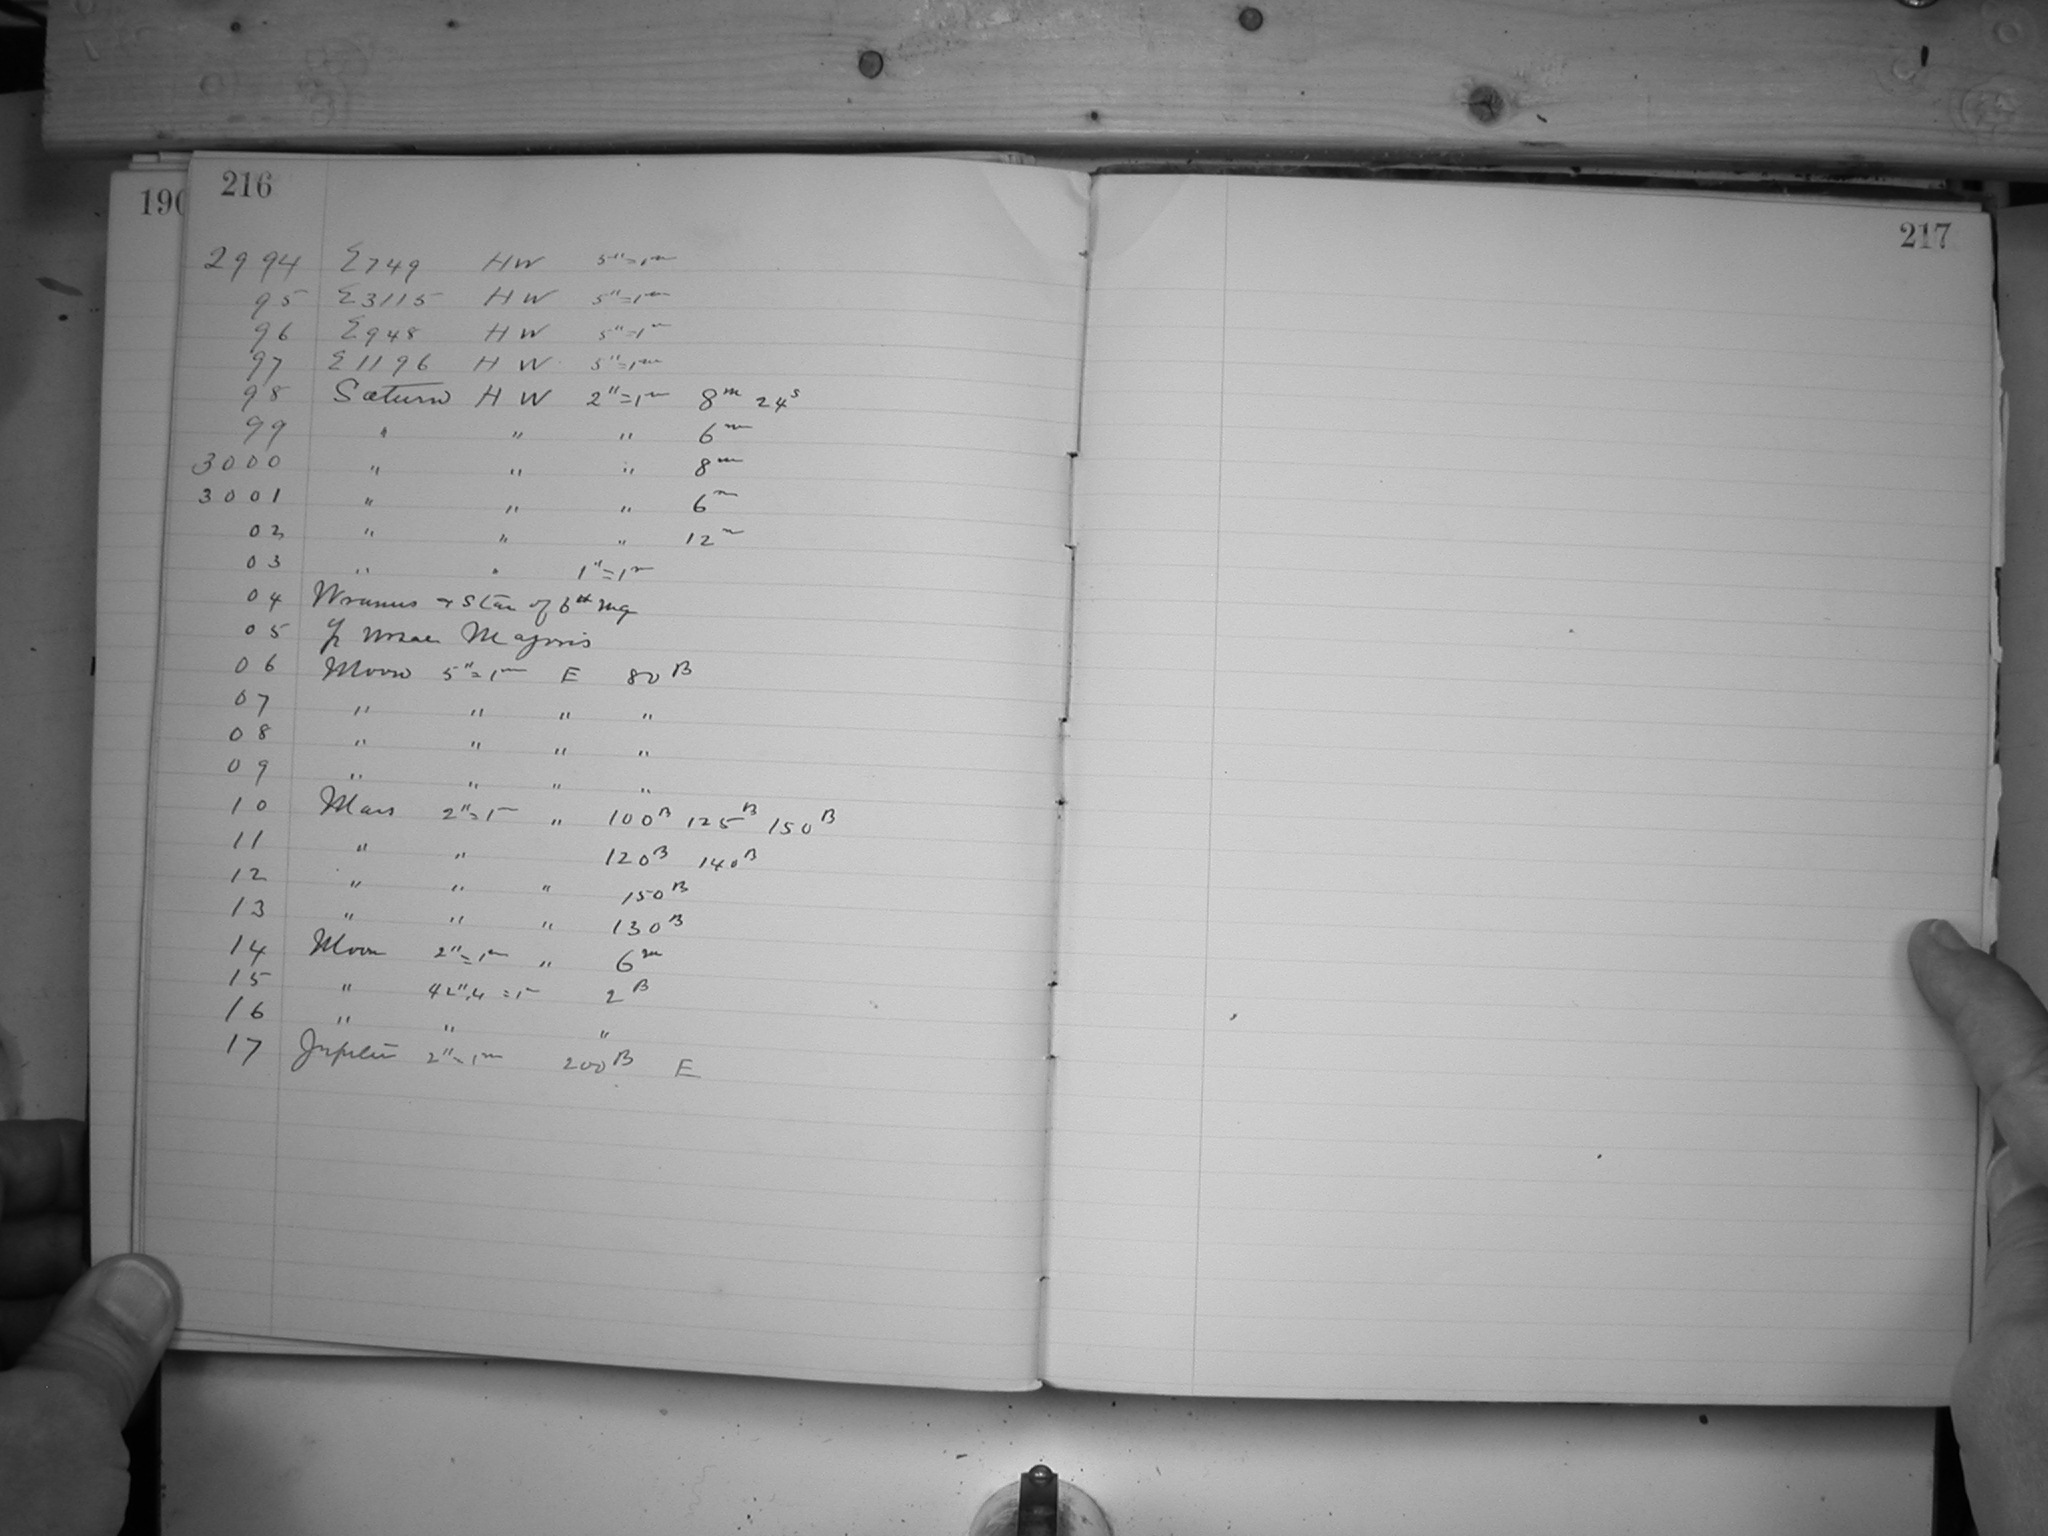 190
216
217
2994 Σ749 HW 5"=1m
95 Σ3115 HW 5"=1m
96 Σ948 HW 5"=1m
97 Σ1196 HW 5"=1m
98 Saturn HW 2"=1m 8m 24s
99 " " " 6m
3000 " " " 8m
3001 " " " 6m
02 " " " 12m
03 " " 1"=1m
04 Uranus + Star of 6th mg
05 Ursae Majoris
06 Moon 5"=1m E 80B
07 " " " "
08 " " " "
09 " " " "
10 Mars 2"=1m " 100B 125B 150B
11 " " 120B 140B
12 " " " 150B
13 " " " 130B
14 Moon 2"=1m " 6m
15 " 42".4=1m 2B
16 " " "
17 Jupiter 2"=1m 200B E